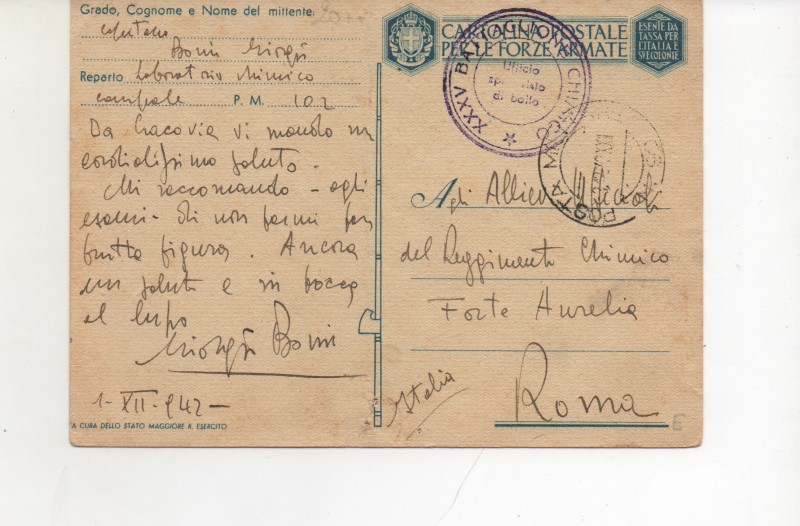 Grado, Cognome e Nome del mittente
capitano
Bonini Giorgio
Reparto Laboratorio Chimico
campale P. M. 102
Da Cracovia vi mando un
cordialissimo saluto.
Mi raccomando - agli
esami - di non farmi far
brutta figura. Ancora
un saluto e in bocca
al lupo
Giorgio Bonini
1-XII-942-
A CURA DELLO STATO MAGGIORE R. ESERCITO
CARTOLINA POSTALE
PER LE FORZE ARMATE
ESENTE DA
TASSA PER
L'ITALIA E
SVE COLONIE
XXXV BATTAGLIONE CHIMICO
Ufficio
sprovvisto
di bollo
POSTA MILITARE
Agli Allievi Ufficiali
del Reggimento Chimico
Forte Aurelia
Roma
Italia